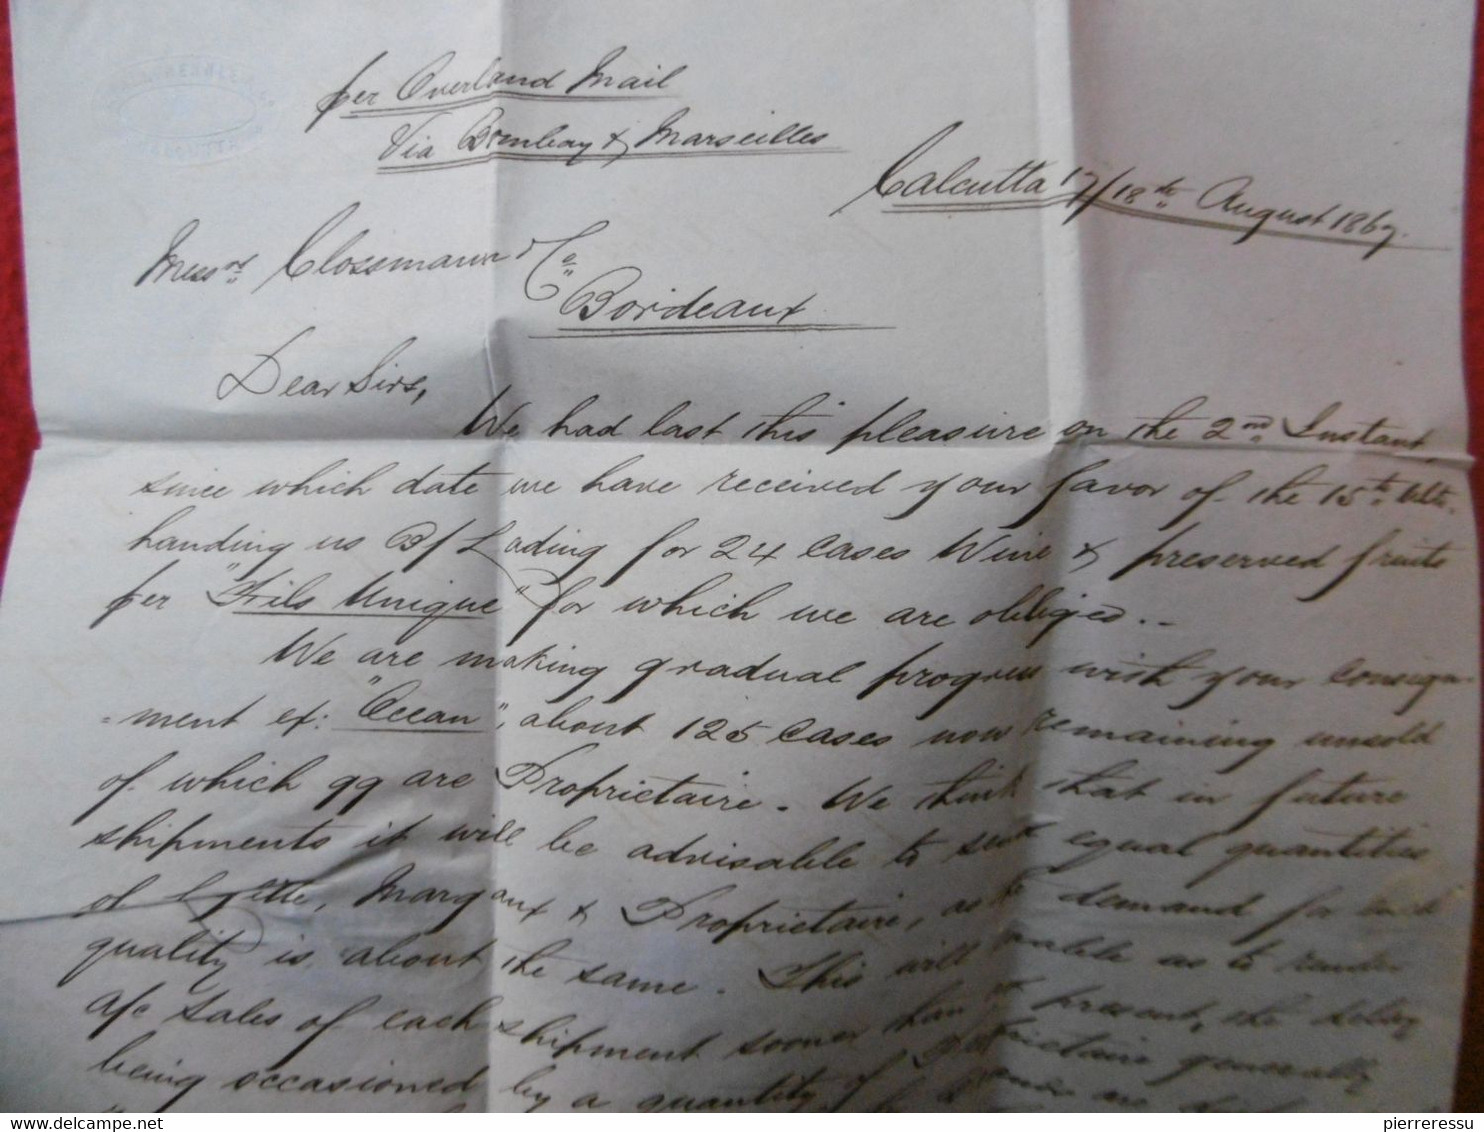 per Overland Mail
Via Bombay & Marseilles
Calcutta 17/18th August 1867.
Messrs Clossmann & Co
Bordeaux
Dear Sirs,
We had last this pleasure on the 2nd Instant,
since which date we have received your favor of the 15th Ulto.
handing us B/Lading for 24 Cases Wine & preserved fruits
per "Fils Unique" for which we are obliged..
We are making gradual progress with your consign-
=ment ex: "Ocean", about 125 Cases now remaining unsold
of which 99 are Proprietaire. We think that in future
shipments it will be advisable to send equal quantities
of Margaux & Proprietaire, as the demand for each
quality is about the same. This will enable us to render
a/c Sales of each shipment sooner than at present, the delay
being occasioned by a quantity of Proprietaire generally
delcampe.net
pierreressu